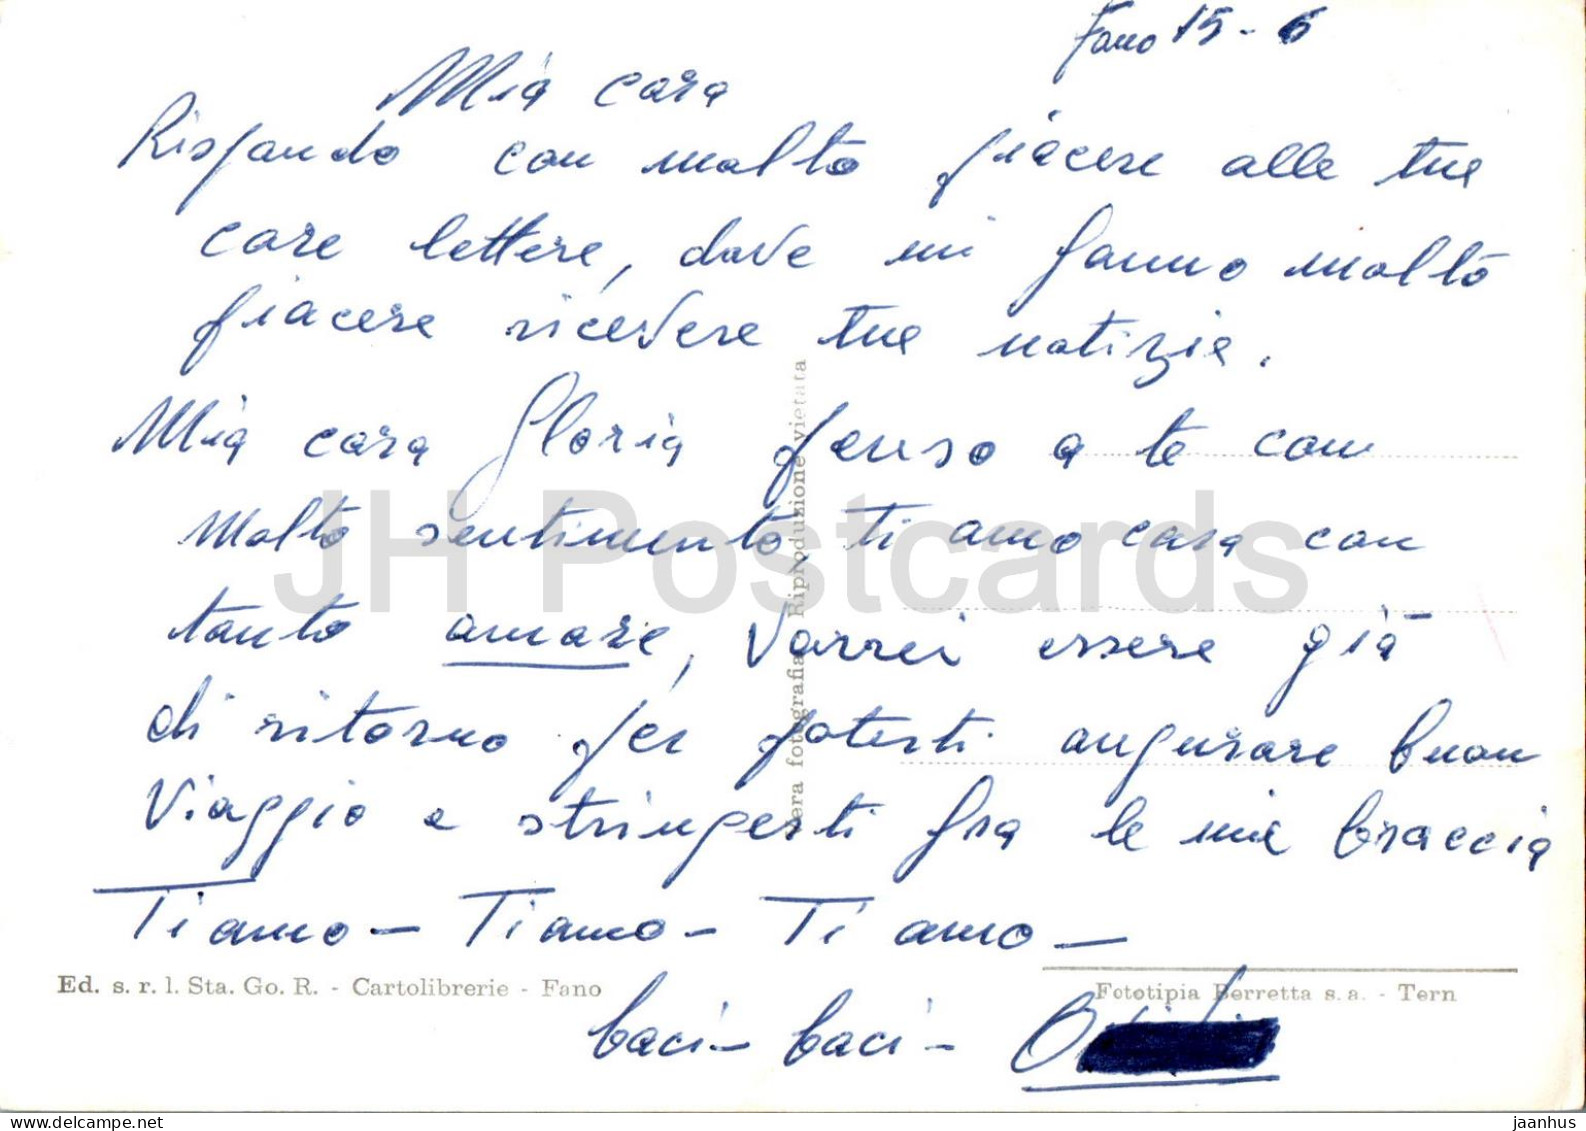 Fano 15-6
Mia cara
Rispondo con molto piacere alle tue
care lettere, dove mi fanno molto
piacere ricevere tue notizie.
Mia cara Gloria penso a te con
molto sentimento, Ti amo cara con
tanto amore, Vorrei essere già
di ritorno per poterti augurare buon
Viaggio e stringerti fra le mie braccia
Ti amo - Ti amo - Ti amo -
Ed. s. r. l. Sta. Go. R. - Cartolibrerie - Fano
Fototipia Berretta s. a. - Tern
baci - baci -
Vera fotografia Riproduzione vietata
JH Postcards
jaanhus @ delcampe.net